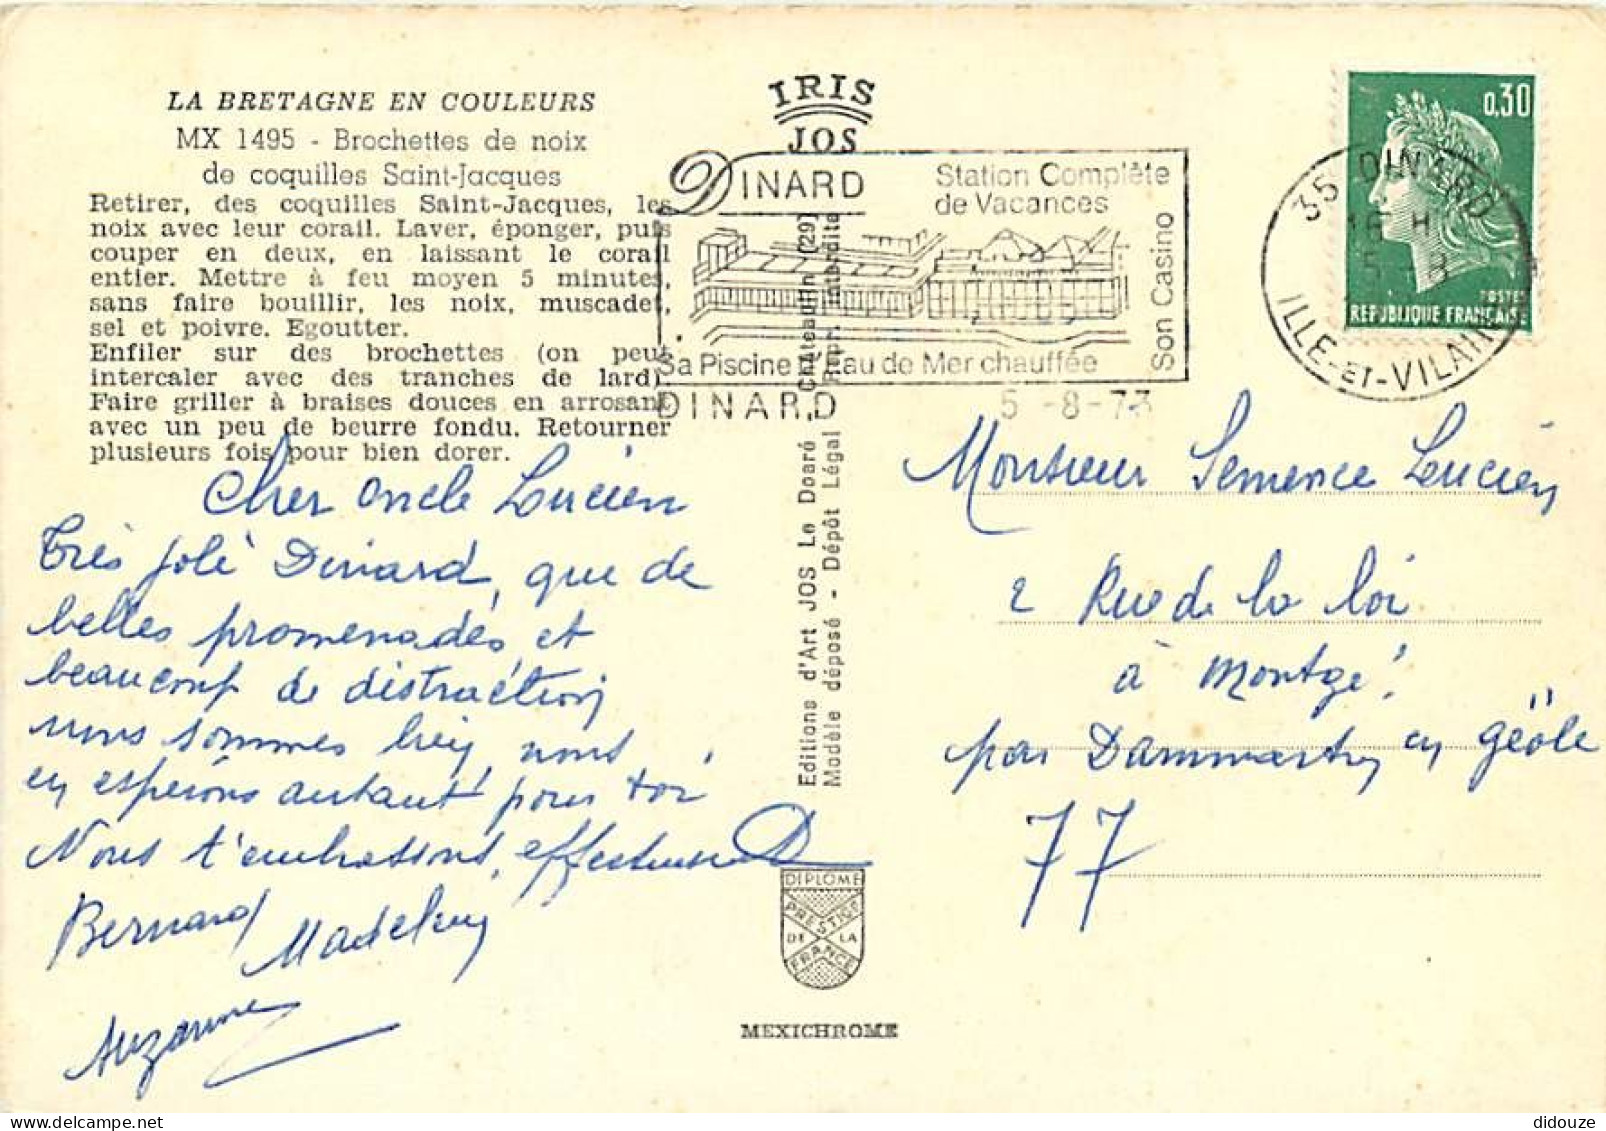 LA BRETAGNE EN COULEURS
MX 1495 - Brochettes de noix
de coquilles Saint-Jacques
Retirer, des coquilles Saint-Jacques, les
noix avec leur corail. Laver, éponger, puis
couper en deux, en laissant le corail
entier. Mettre à feu moyen 5 minutes,
sans faire bouillir, les noix, muscadet,
sel et poivre. Egoutter.
Enfiler sur des brochettes (on peut
intercaler avec des tranches de lard).
Faire griller à braises douces en arrosant
avec un peu de beurre fondu. Retourner
plusieurs fois pour bien dorer.
Cher Oncle Lucien
Très joli Dinard, que de
belles promenades et
beaucoup de distraction
nous sommes bien, nous
en espérons autant pour toi
Nous t'embrassons, effectueusement
Bernard
Madeleine
Suzanne
IRIS
JOS
DINARD
Station Complète
de Vacances
Son Casino
Sa Piscine d'Eau de Mer chauffée
DINARD 5 -8-73
Editions d'Art JOS Le Doaré - Châteaulin (29)
Modèle déposé - Dépôt Légal Repr. interdite
DIPLOME
PRESTIGE
DE LA
FRANCE
MEXICHROME
0,30
POSTES
REPUBLIQUE FRANÇAISE
35 DINARD
16 H
5 -8
ILLE-ET-VILAINE
Monsieur Semence Lucien
2 Rue de la loi
à Montgé
par Dammartin en göele
77
didouze
delcampe.net